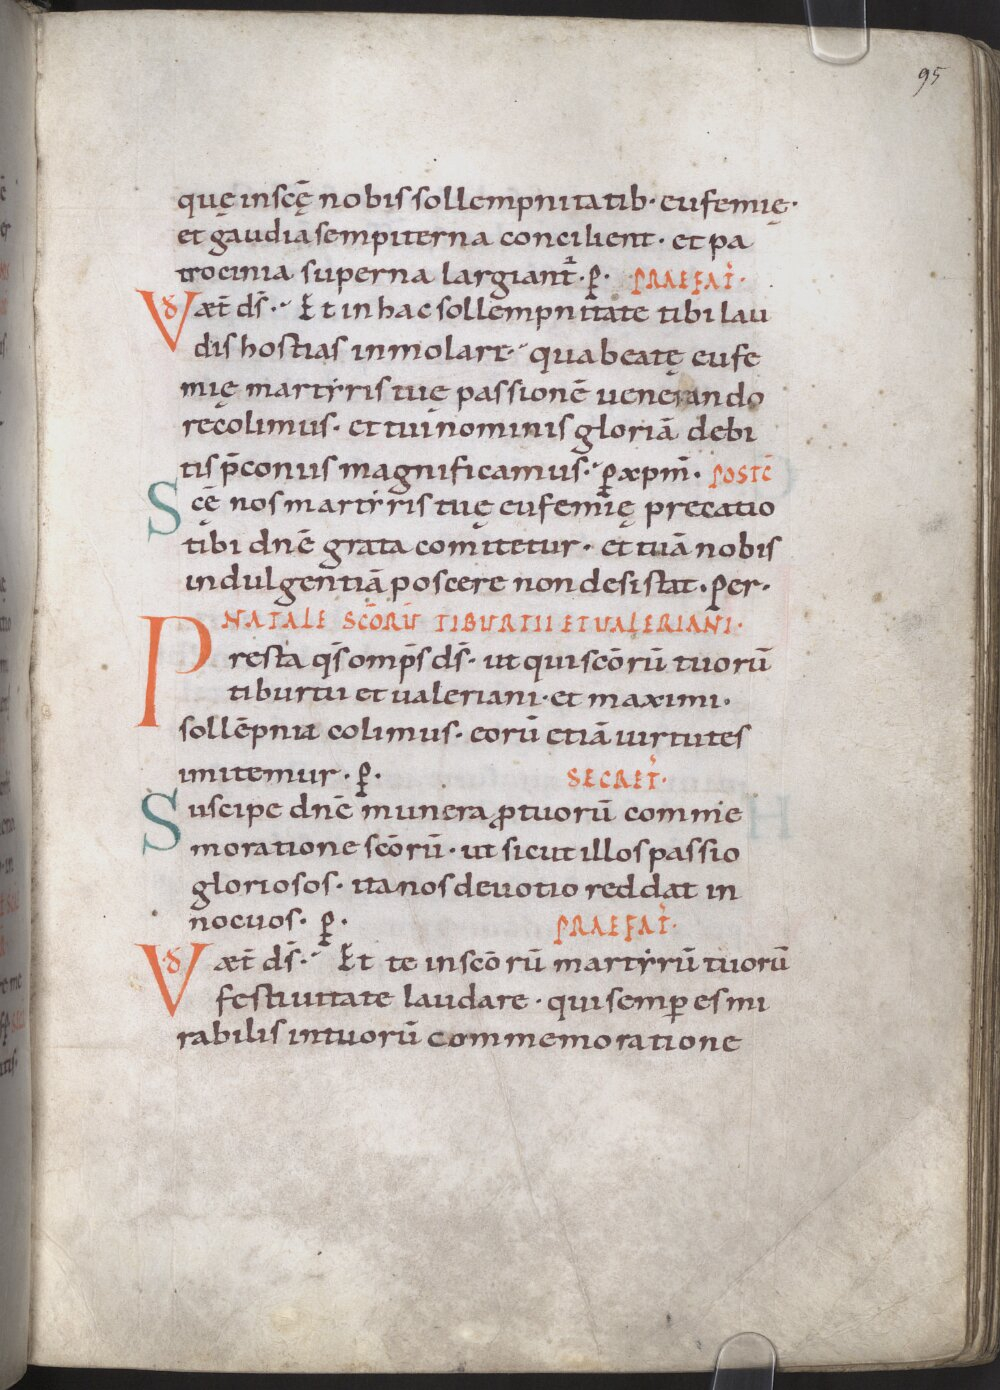 95
quę inscę̄ nobis sollempnitatib· eufemię·
et gaudia sempiterna concilient· et pa
trocinia superna largiant̄· p̱· PRAEFAT̄·
V&d æt̄ ds̄· Et in hac sollempnitate tibi lau
dis hostias inmolare· qua beatę eufe
mię martẏris tuę passionē uenerando
recolimus· et tui nominis gloriā debi
tis p̄coniis magnificamus· p̱ xpm̄· POSTC̄
Scę̄ nos martẏris tuę eufemię precatio
tibi dnē grata comitetur· et tuā nobis
indulgentiā poscere non desistat· Per·
NATALE SCŌRŪ TIBURTII ET UALERIANI·
Presta qs̄ omps̄ ds̄· ut qui scōrū tuorū
tiburtii et ualeriani· et maximi·
sollēpnia colimus· eorū etiā uirtutes
imitemur· p̱· SECRET̄·
Suscipe dnē munera ꝓ tuorū comme
moratione scōrū· ut sicut illos passio
gloriosos· ita nos deuotio reddat in
nocuos· p̱· PRAEFAT̄·
V&d æt̄ ds̄· Et te in scōrū martẏrū tuorū
festiuitate laudare· qui semꝑ es mi
rabilis in tuorū commemoratione